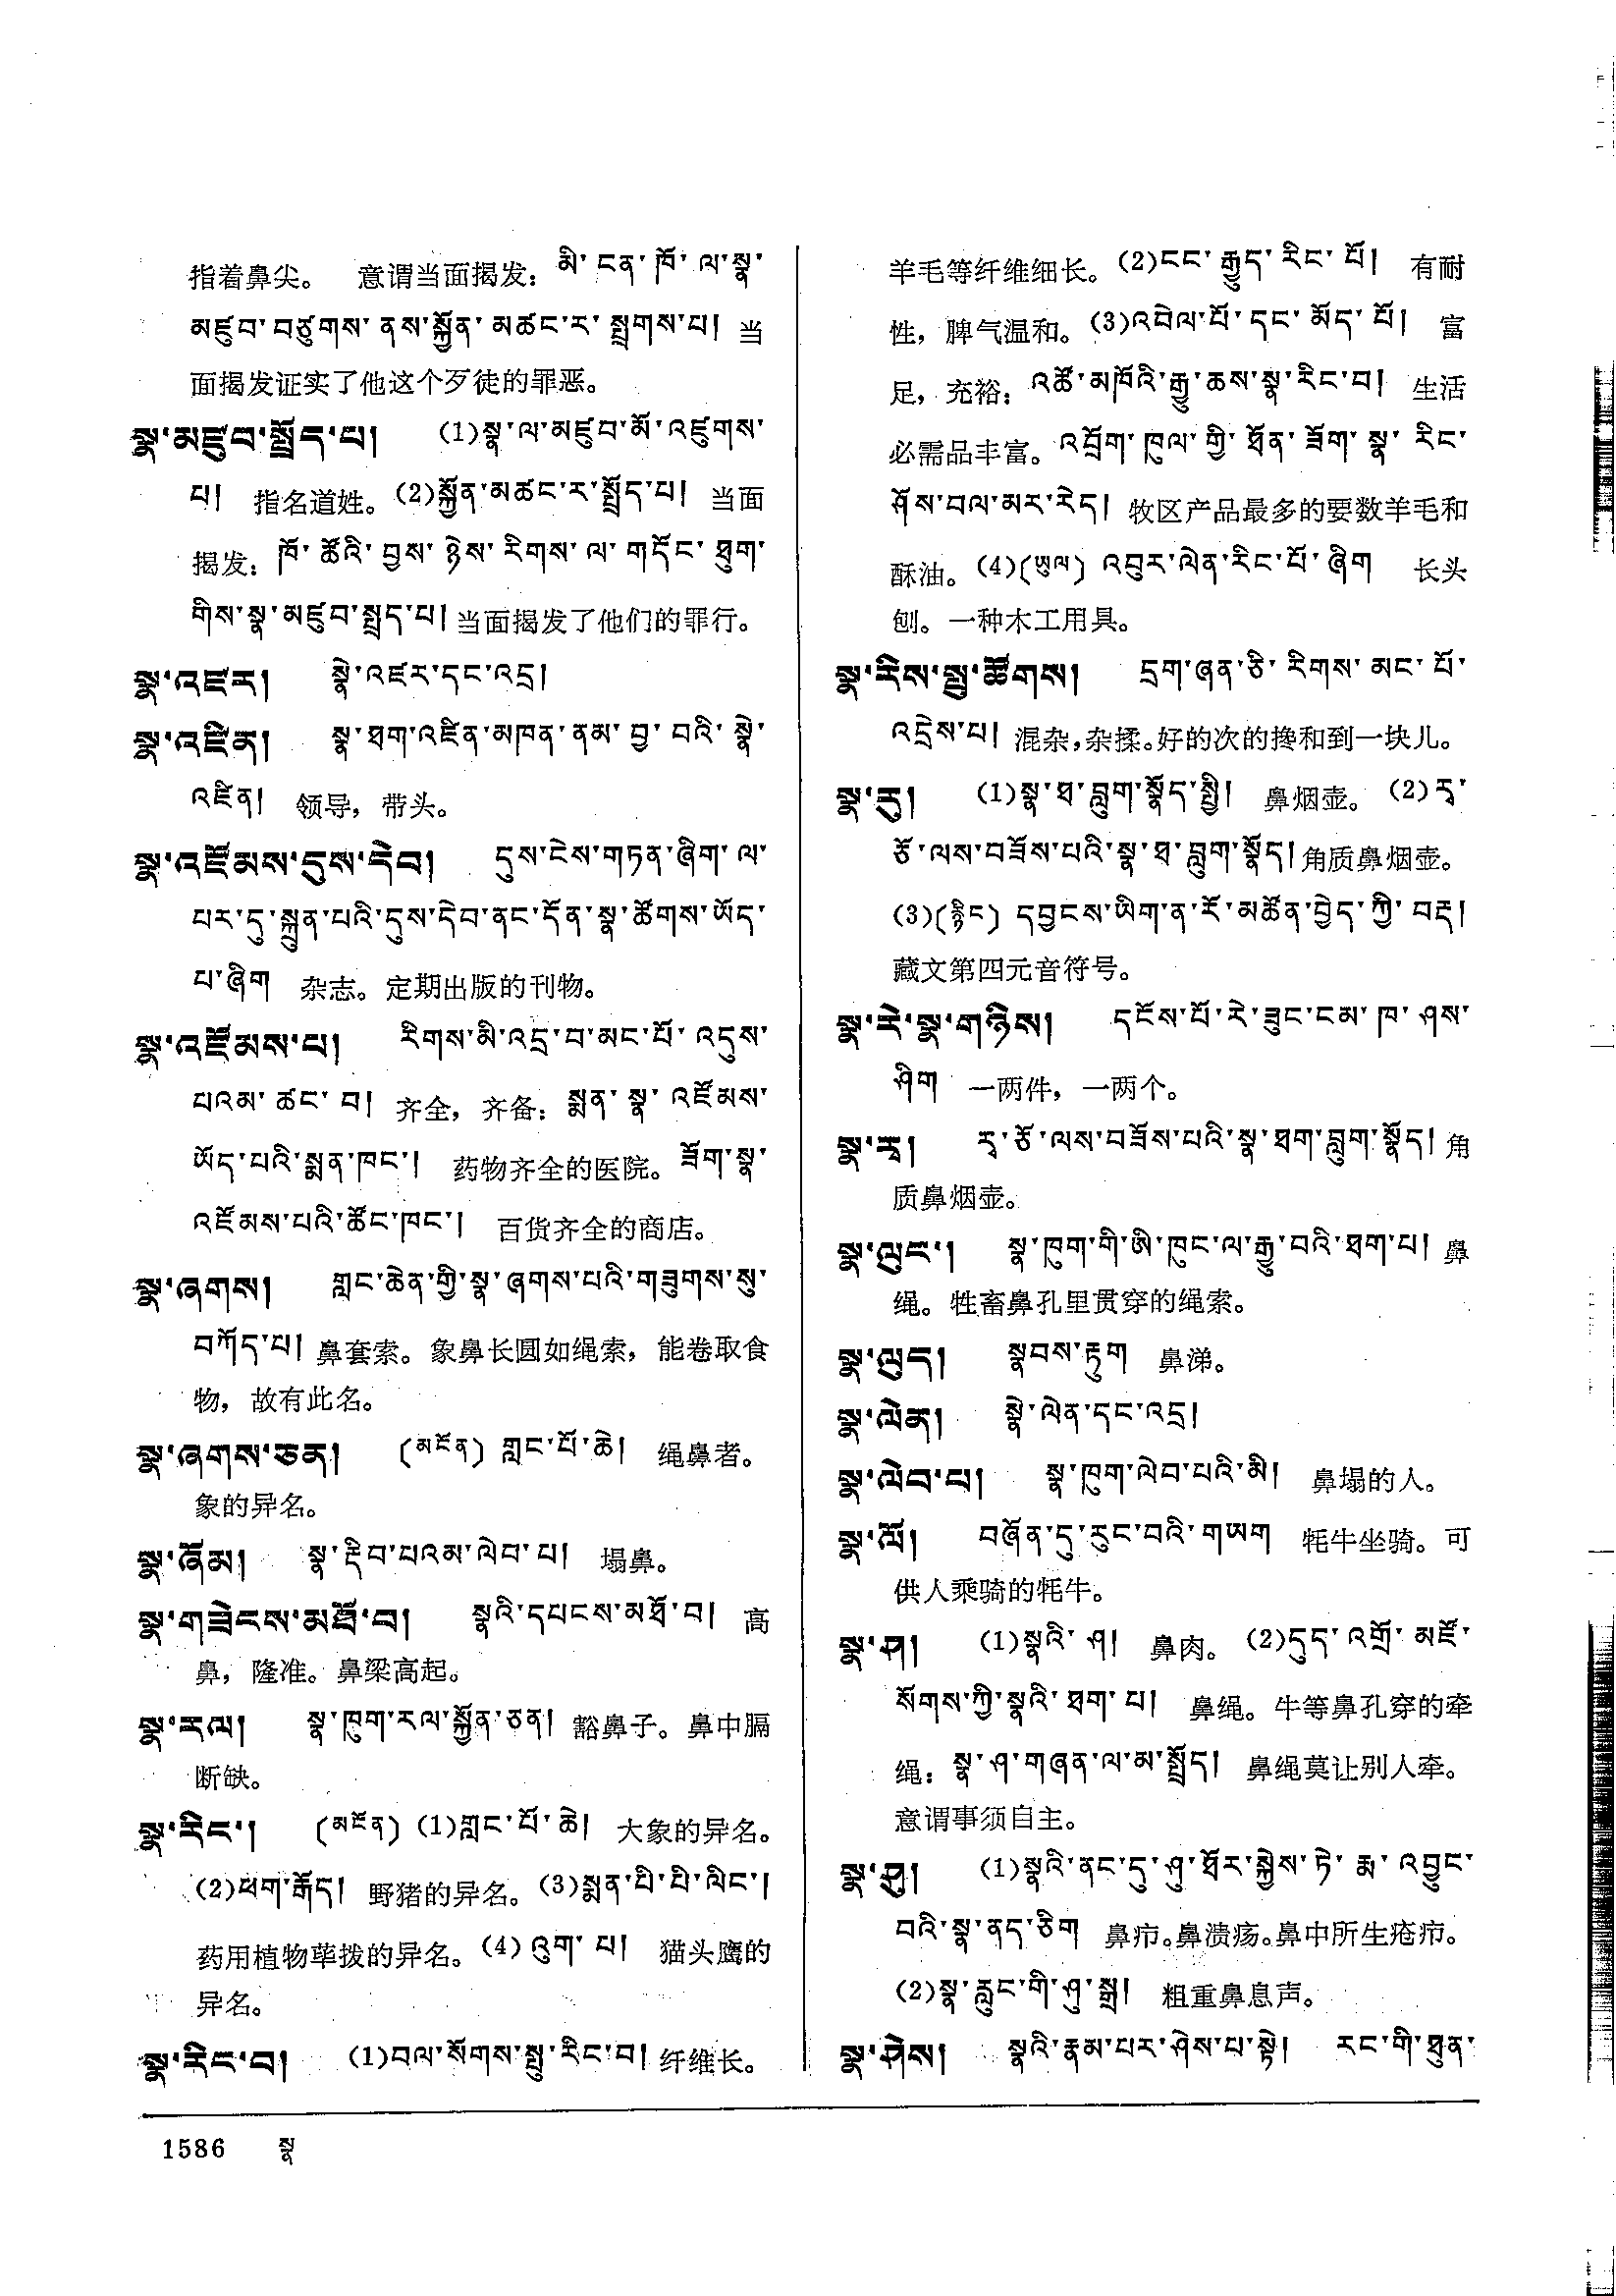 指着鼻尖。 意谓当面揭发: མི་ངན་ཁོ་ལ་སྣ་
མཛུབ་བཙུགས་ནས་སྐྱོན་མཚང་ར་སྤྲགས་པ། 当
面揭发证实了他这个歹徒的罪恶。
སྣ་མཛུབ་སྤྲོད་པ། (1)སྣ་ལ་མཛུབ་མོ་འཛུགས་
པ། 指名道姓。(2)སྐྱོན་མཚང་ར་སྤྲོད་པ། 当面
揭发: ཁོ་ཚོའི་བྱས་ཉེས་རིགས་ལ་གདོང་ཐུག་
གིས་སྣ་མཛུབ་སྤྲད་པ། 当面揭发了他们的罪行。
སྣ་འཛར། སྣེ་འཛར་དང་འདྲ།
སྣ་འཛིན། སྣ་ཐག་འཛིན་མཁན་ནམ་བྱ་བའི་སྣེ་
འཛིན། 领导，带头。
སྣ་འཛོམས་དུས་དེབ། དུས་ངེས་གཏན་ཞིག་ལ་
པར་དུ་སྐྲུན་པའི་དུས་དེབ་ནང་དོན་སྣ་ཚོགས་ཡོད་
པ་ཞིག 杂志。定期出版的刊物。
སྣ་འཛོམས་པ། རིགས་མི་འདྲ་བ་མང་པོ་འདུས་
པའམ་ཚང་བ། 齐全，齐备: སྨན་སྣ་འཛོམས་
ཡོད་པའི་སྨན་ཁང་། 药物齐全的医院。ཟོག་སྣ་
འཛོམས་པའི་ཚོང་ཁང་། 百货齐全的商店。
སྣ་ཞགས། གླང་ཆེན་གྱི་སྣ་ཞགས་པའི་གཟུགས་སུ་
བཀོད་པ། 鼻套索。象鼻长圆如绳索，能卷取食
物，故有此名。
སྣ་ཞགས་ཅན། (མངོན) གླང་པོ་ཆེ། 绳鼻者。
象的异名。
སྣ་ཞོམ། སྣ་རྡིབ་པའམ་ལེབ་པ། 塌鼻。
སྣ་གཟེངས་མཐོ་བ། སྣའི་དཔངས་མཐོ་བ། 高
鼻，隆准。鼻梁高起。
སྣ་རལ། སྣ་ཁུག་རལ་སྐྱོན་ཅན། 豁鼻子。鼻中膈
断缺。
སྣ་རིང་། (མངོན) (1)གླང་པོ་ཆེ། 大象的异名。
(2)ཕག་རྒོད། 野猪的异名。(3)སྨན་པི་པི་ལིང་།
药用植物荜拨的异名。(4)འུག་པ། 猫头鹰的
异名。
སྣ་རིང་བ། (1)བལ་སོགས་སྤུ་རིང་བ། 纤维长。
羊毛等纤维细长。(2)ངང་རྒྱུད་རིང་པོ། 有耐
性，脾气温和。(3)འབེལ་པོ་དང་མོད་པོ། 富
足，充裕: འཚོ་མཁོའི་རྒྱུ་ཆས་སྣ་རིང་བ། 生活
必需品丰富。འབྲོག་ཁུལ་གྱི་ཐོན་ཟོག་སྣ་རིང་
ཤོས་བལ་མར་རེད། 牧区产品最多的要数羊毛和
酥油。(4)(ཡུལ) འབུར་ལེན་རིང་པོ་ཞིག 长头
刨。一种木工用具。
སྣ་རིས་སྤྲ་ཚོགས། དྲག་ཞན་ཅི་རིགས་མང་པོ་
འདྲེས་པ། 混杂，杂揉。好的次的搀和到一块儿。
སྣ་རུ། (1)སྣ་ཐ་བླུག་སྣོད་སྤྱི། 鼻烟壶。(2)རྭ་
ཅོ་ལས་བཟོས་པའི་སྣ་ཐ་བླུག་སྣོད། 角质鼻烟壶。
(3)(རྙིང) དབྱངས་ཡིག་ན་རོ་མཚོན་བྱེད་ཀྱི་བརྡ།
藏文第四元音符号。
སྣ་རེ་སྣ་གཉིས། དངོས་པོ་རེ་ཟུང་ངམ་ཁ་ཤས་
ཤིག 一两件，一两个。
སྣ་རྭ། རྭ་ཅོ་ལས་བཟོས་པའི་སྣ་ཐག་བླུག་སྣོད། 角
质鼻烟壶。
སྣ་ལུང་། སྣ་ཁུག་གི་ཨི་ཁུང་ལ་རྒྱུ་བའི་ཐག་པ། 鼻
绳。牲畜鼻孔里贯穿的绳索。
སྣ་ལུད། སྣབས་རྟུག 鼻涕。
སྣ་ལེན། སྣེ་ལེན་དང་འདྲ།
སྣ་ལེབ་པ། སྣ་ཁུག་ལེབ་པའི་མི། 鼻塌的人。
སྣ་ལོ། བཞོན་དུ་རུང་བའི་གཡག 牦牛坐骑。可
供人乘骑的牦牛。
སྣ་ཤ། (1)སྣའི་ཤ། 鼻肉。(2)དུད་འགྲོ་མཛོ་
སོགས་ཀྱི་སྣའི་ཐག་པ། 鼻绳。牛等鼻孔穿的牵
绳: སྣ་ཤ་གཞན་ལ་མ་སྤྲོད། 鼻绳莫让别人牵。
意谓事须自主。
སྣ་ཤུ། (1)སྣའི་ནང་དུ་ཤུ་ཐོར་སྐྱེས་ཏེ་རྨ་འབྱུང་
བའི་སྣ་ནད་ཅིག 鼻疖。鼻溃疡。鼻中所生疮疖。
(2)སྣ་རླུང་གི་ཤུ་སྒྲ། 粗重鼻息声。
སྣ་ཤེས། སྣའི་རྣམ་པར་ཤེས་པ་སྟེ། རང་གི་ཐུན་
1586 སྣ